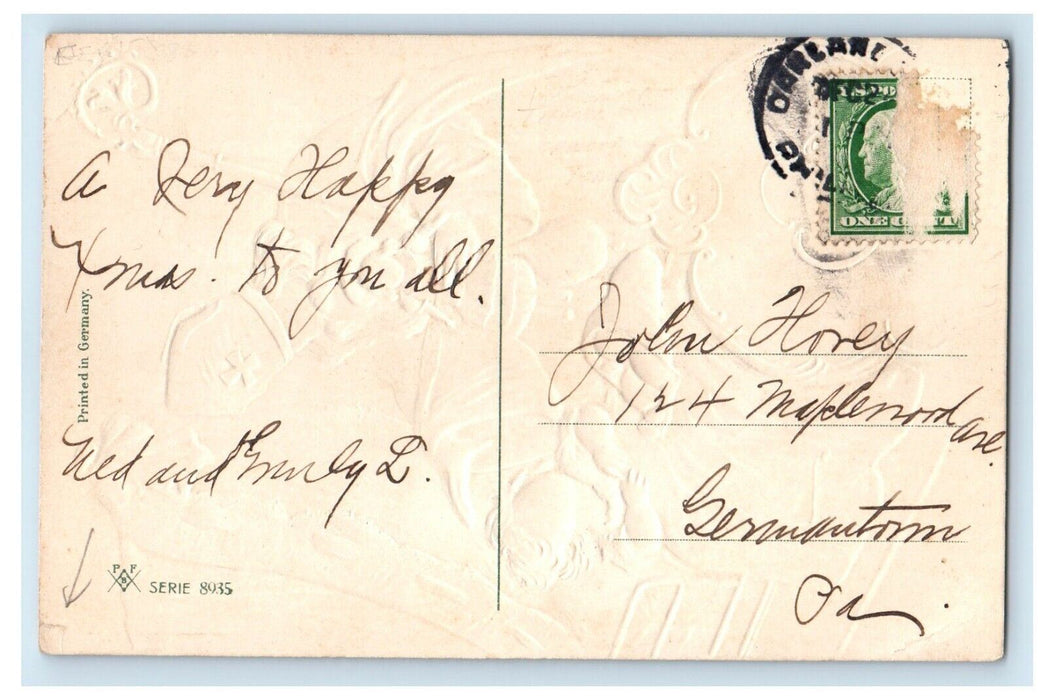 A Very Happy
Xmas. to you all.
Printed in Germany.
Ned and Emily L.
P F
B
SERIE 8935
ONE CENT
John Hovey
124 Maplewood ave.
Germantown
Pa.